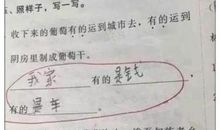 、照样子，写一写。
收下来的葡萄有的运到城市去，有的运到
阴房里制成葡萄干。
我家有的是钱，
有的是车